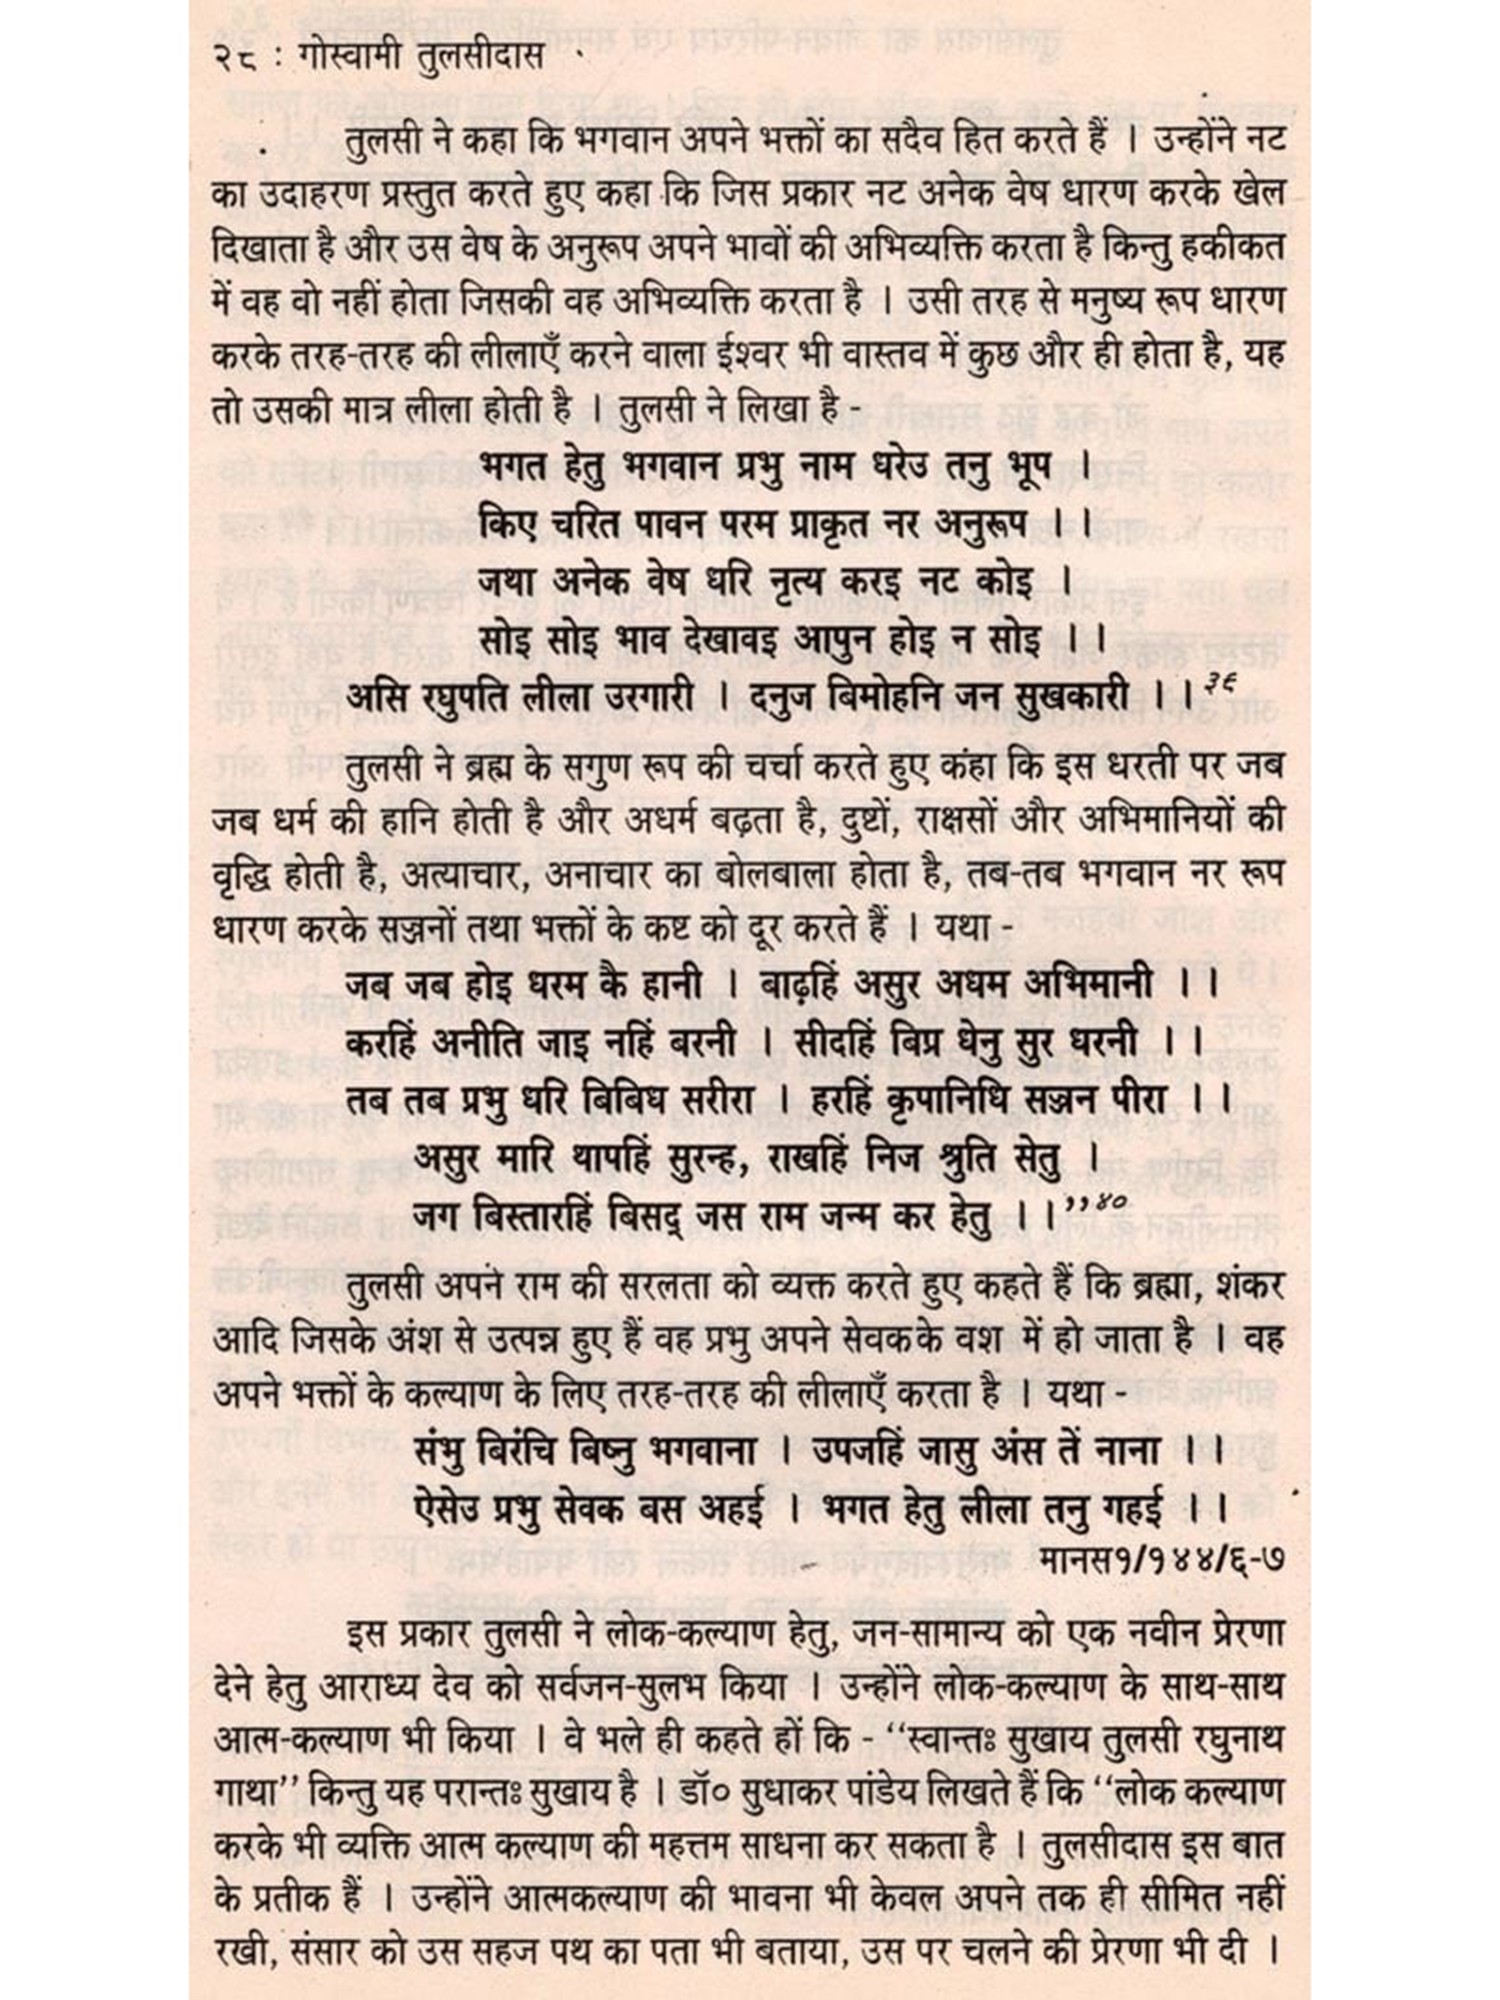 २८ : गोस्वामी तुलसीदास
तुलसी ने कहा कि भगवान अपने भक्तों का सदैव हित करते हैं । उन्होंने नट
का उदाहरण प्रस्तुत करते हुए कहा कि जिस प्रकार नट अनेक वेष धारण करके खेल
दिखाता है और उस वेष के अनुरूप अपने भावों की अभिव्यक्ति करता है किन्तु हकीकत
में वह वो नहीं होता जिसकी वह अभिव्यक्ति करता है । उसी तरह से मनुष्य रूप धारण
करके तरह-तरह की लीलाएँ करने वाला ईश्वर भी वास्तव में कुछ और ही होता है, यह
तो उसकी मात्र लीला होती है । तुलसी ने लिखा है -
भगत हेतु भगवान प्रभु नाम धरेउ तनु भूप ।
किए चरित पावन परम प्राकृत नर अनुरूप ।।
जथा अनेक वेष धरि नृत्य करइ नट कोइ ।
सोइ सोइ भाव देखावइ आपुन होइ न सोइ ।।
असि रघुपति लीला उरगारी । दनुज बिमोहनि जन सुखकारी ।।३९
तुलसी ने ब्रह्म के सगुण रूप की चर्चा करते हुए कंहा कि इस धरती पर जब
जब धर्म की हानि होती है और अधर्म बढ़ता है, दुष्टों, राक्षसों और अभिमानियों की
वृद्धि होती है, अत्याचार, अनाचार का बोलबाला होता है, तब-तब भगवान नर रूप
धारण करके सज्जनों तथा भक्तों के कष्ट को दूर करते हैं । यथा -
जब जब होइ धरम कै हानी । बाढ़हिं असुर अधम अभिमानी ।।
करहिं अनीति जाइ नहिं बरनी । सीदहिं बिप्र धेनु सुर धरनी ।।
तब तब प्रभु धरि बिबिध सरीरा । हरहिं कृपानिधि सज्जन पीरा ।।
असुर मारि थापहिं सुरन्ह, राखहिं निज श्रुति सेतु ।
जग बिस्तारहिं बिसद् जस राम जन्म कर हेतु ।।’’४०
तुलसी अपने राम की सरलता को व्यक्त करते हुए कहते हैं कि ब्रह्मा, शंकर
आदि जिसके अंश से उत्पन्न हुए हैं वह प्रभु अपने सेवकके वश में हो जाता है । वह
अपने भक्तों के कल्याण के लिए तरह-तरह की लीलाएँ करता है । यथा -
संभु बिरंचि बिष्नु भगवाना । उपजहिं जासु अंस तें नाना ।।
ऐसेउ प्रभु सेवक बस अहई । भगत हेतु लीला तनु गहई ।।
मानस१/१४४/६-७
इस प्रकार तुलसी ने लोक-कल्याण हेतु, जन-सामान्य को एक नवीन प्रेरणा
देने हेतु आराध्य देव को सर्वजन-सुलभ किया । उन्होंने लोक-कल्याण के साथ-साथ
आत्म-कल्याण भी किया । वे भले ही कहते हों कि - ‘‘स्वान्तः सुखाय तुलसी रघुनाथ
गाथा’’ किन्तु यह परान्तः सुखाय है । डॉ० सुधाकर पांडेय लिखते हैं कि ‘‘लोक कल्याण
करके भी व्यक्ति आत्म कल्याण की महत्तम साधना कर सकता है । तुलसीदास इस बात
के प्रतीक हैं । उन्होंने आत्मकल्याण की भावना भी केवल अपने तक ही सीमित नहीं
रखी, संसार को उस सहज पथ का पता भी बताया, उस पर चलने की प्रेरणा भी दी ।